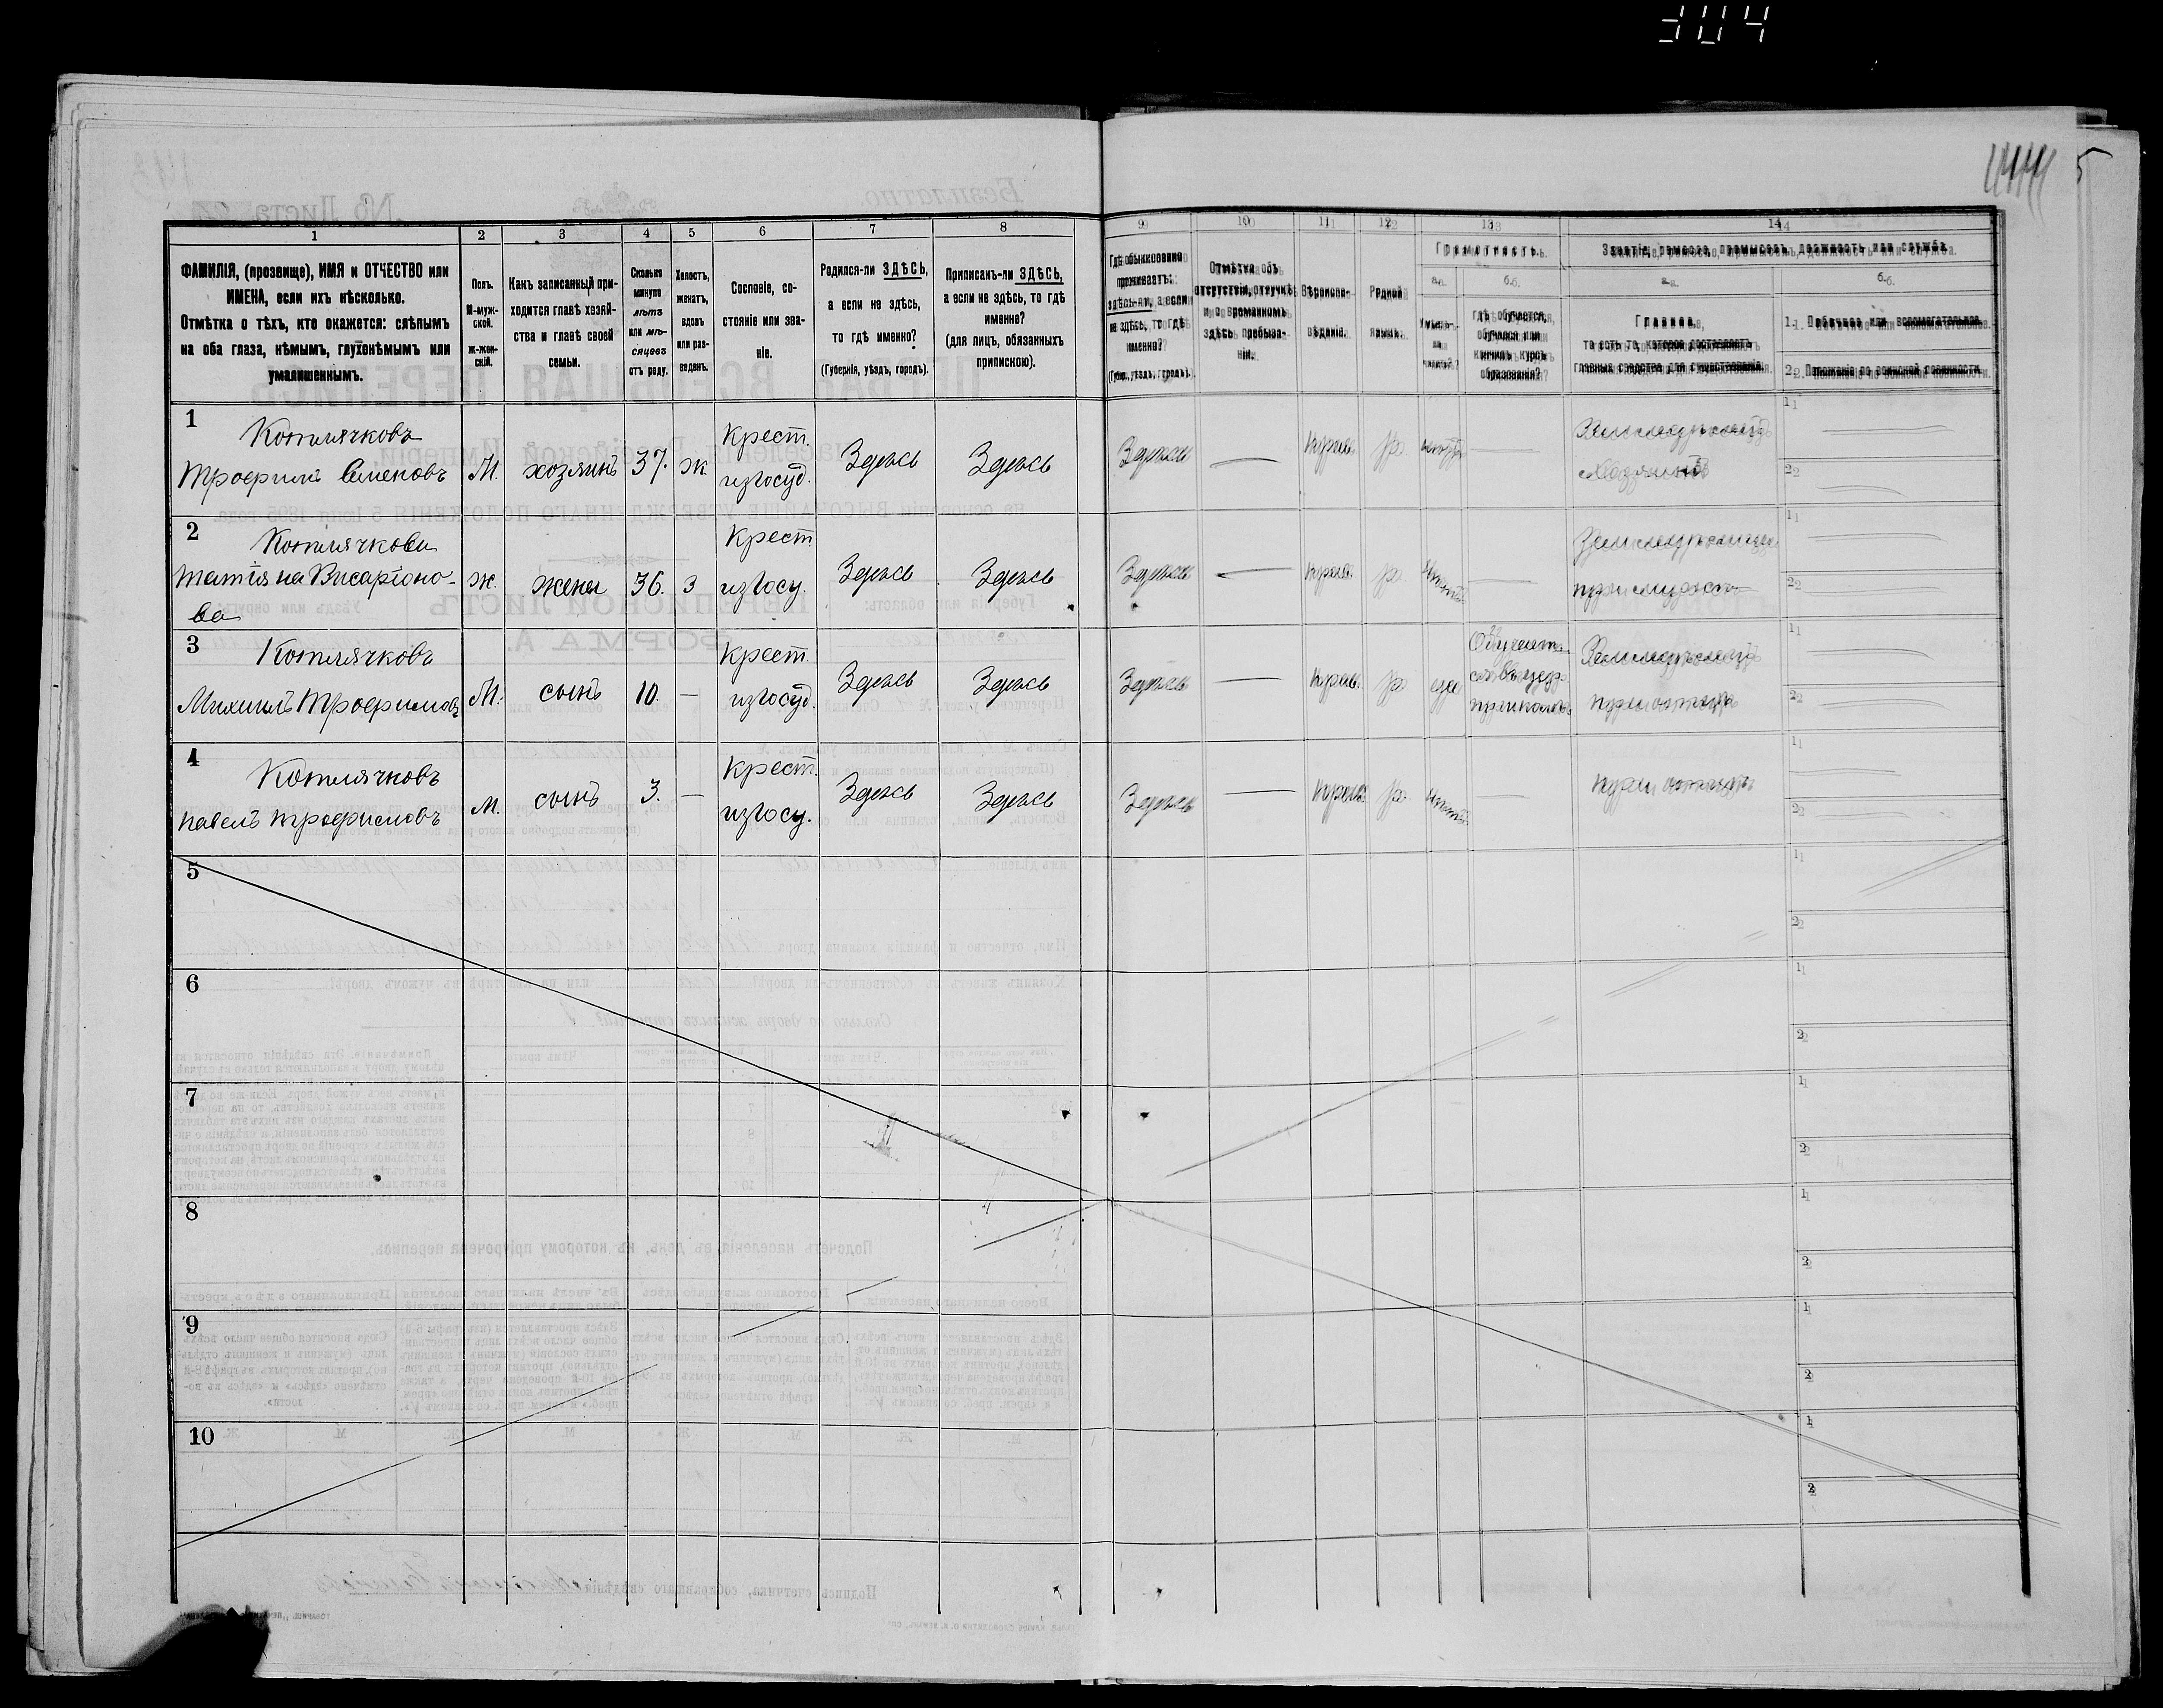 304
144 5
1 2 3 4 5 6 7 8 9 10 11 12 13 14
ФАМИЛІЯ, (прозвище), ИМЯ и ОТЧЕСТВО или
ИМЕНА, если ихъ нѣсколько.
Отмѣтка о тѣхъ, кто окажется: слѣпымъ
на оба глаза, нѣмымъ, глухонѣмымъ или
умалишеннымъ.
Полъ.
М-муж-
ской.
ж-жен-
скій.
Какъ записанный при-
ходится главѣ хозяй-
ства и главѣ своей
семьи.
Сколько
минуло
лѣтъ
или мѣ-
сяцевъ
отъ роду.
Холостъ,
женатъ,
вдовъ
или раз-
веденъ.
Сословіе, со-
стояніе или зва-
ніе.
Родился-ли ЗДѢСЬ,
а если не здѣсь,
то гдѣ именно?
(Губернія, уѣздъ, городъ).
Приписанъ-ли ЗДѢСЬ,
а если не здѣсь, то гдѣ
именно?
(для лицъ, обязанныхъ
припискою).
Гдѣ обыкновенно
проживаетъ:
здѣсь-ли, а если
не здѣсь, то гдѣ
именно?
(Губ., уѣздъ, городъ).
Отмѣтка объ
отсутствіи, отлучкѣ
и о временномъ
здѣсь пребыва-
ніи.
Вѣроиспо-
вѣданіе.
Родной
языкъ.
Грамотность.
а.
Умѣетъ-
ли
читать?
б.
гдѣ обучается,
обучался или
кончилъ курсъ
образованія?
Занятіе, ремесло, промыселъ, должность или служба.
а.
Главное,
то есть то, которое доставляетъ
главныя средства для существованія.
б.
1. Побочное или вспомогательное.
2. Положеніе по воинской повинности.
1 Котлячковъ
Трофимъ Семеновъ М. хозяинъ 37. ж Крест. изъ госуд. Здѣсь Здѣсь Здѣсь — Прав. р. нѣтъ — Земледѣлецъ
Хозяинъ
2 Котлячкова
Татіяна Висаріоно-
ва ж. жена 36. З Крест. изъ госу. Здѣсь Здѣсь Здѣсь — Прав. р. нѣтъ —
при мужѣ
3 Котлячковъ
Михаилъ Трофимовъ М. сынъ 10. — Крест. изъ госуд. Здѣсь Здѣсь Здѣсь — Прав. р. да Земледѣлецъ
при отцѣ
4 Котлячковъ
Павелъ Трофимовъ м. сынъ 3. — Крест. изъ госу. Здѣсь Здѣсь Здѣсь — Прав. р. нѣтъ — при отцѣ
5
6
7
8
9
10